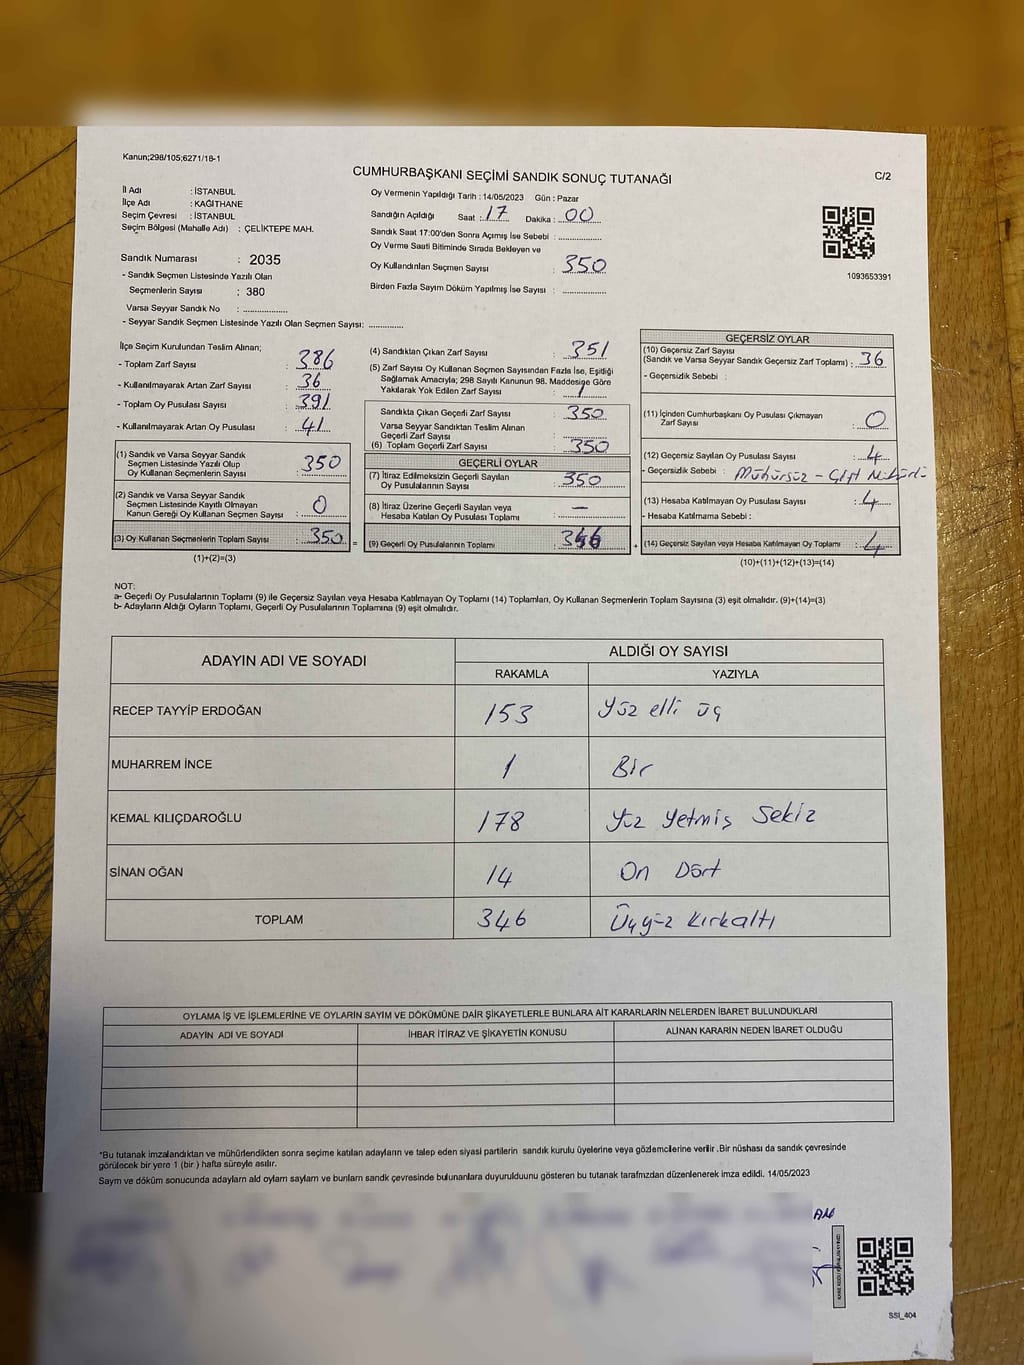 Kanun;298/105;6271/18-1
CUMHURBAŞKANI SEÇİMİ SANDIK SONUÇ TUTANAĞI
C/2
İl Adı : İSTANBUL
İlçe Adı : KAĞITHANE
Seçim Çevresi : İSTANBUL
Seçim Bölgesi (Mahalle Adı) : ÇELİKTEPE MAH.
Sandık Numarası : 2035
- Sandık Seçmen Listesinde Yazılı Olan
Seçmenlerin Sayısı : 380
Varsa Seyyar Sandık No : ................
- Seyyar Sandık Seçmen Listesinde Yazılı Olan Seçmen Sayısı: ............
Oy Vermenin Yapıldığı Tarih : 14/05/2023 Gün : Pazar
Sandığın Açıldığı Saat : 17 Dakika : 00
Sandık Saat 17:00'den Sonra Açımış İse Sebebi : ................
Oy Verme Saati Bitiminde Sırada Bekleyen ve
Oy Kullandırılan Seçmen Sayısı : 350
Birden Fazla Sayım Döküm Yapılmış İse Sayısı : ................
1093653391
İlçe Seçim Kurulundan Teslim Alınan;
- Toplam Zarf Sayısı : 386
- Kullanılmayarak Artan Zarf Sayısı : 36
- Toplam Oy Pusulası Sayısı : 391
- Kullanılmayarak Artan Oy Pusulası : 41
(1) Sandık ve Varsa Seyyar Sandık
Seçmen Listesinde Yazılı Olup
Oy Kullanan Seçmenlerin Sayısı : 350
(2) Sandık ve Varsa Seyyar Sandık
Seçmen Listesinde Kayıtlı Olmayan
Kanun Gereği Oy Kullanan Seçmen Sayısı : 0
(3) Oy Kullanan Seçmenlerin Toplam Sayısı : 350 =
(1)+(2)=(3)
(4) Sandıktan Çıkan Zarf Sayısı : 351
(5) Zarf Sayısı Oy Kullanan Seçmen Sayısından Fazla İse, Eşitliği
Sağlamak Amacıyla; 298 Sayılı Kanunun 98. Maddesine Göre
Yakılarak Yok Edilen Zarf Sayısı : 1
Sandıkta Çıkan Geçerli Zarf Sayısı : 350
Varsa Seyyar Sandıktan Teslim Alınan
Geçerli Zarf Sayısı : ............
(6) Toplam Geçerli Zarf Sayısı : 350
GEÇERLİ OYLAR
(7) İtiraz Edilmeksizin Geçerli Sayılan
Oy Pusulalarının Sayısı : 350
(8) İtiraz Üzerine Geçerli Sayılan veya
Hesaba Katılan Oy Pusulası Toplamı : —
(9) Geçerli Oy Pusulalarının Toplamı : 346 +
GEÇERSİZ OYLAR
(10) Geçersiz Zarf Sayısı
(Sandık ve Varsa Seyyar Sandık Geçersiz Zarf Toplamı) : 36
- Geçersizlik Sebebi :
(11) İçinden Cumhurbaşkanı Oy Pusulası Çıkmayan
Zarf Sayısı : 0
(12) Geçersiz Sayılan Oy Pusulası Sayısı : 4
- Geçersizlik Sebebi : Mühürsüz - Çift Mühürlü
(13) Hesaba Katılmayan Oy Pusulası Sayısı : 4
- Hesaba Katılmama Sebebi :
(14) Geçersiz Sayılan veya Hesaba Katılmayan Oy Toplamı : 4
(10)+(11)+(12)+(13)=(14)
NOT:
a- Geçerli Oy Pusulalarının Toplamı (9) ile Geçersiz Sayılan veya Hesaba Katılmayan Oy Toplamı (14) Toplamları, Oy Kullanan Seçmenlerin Toplam Sayısına (3) eşit olmalıdır. (9)+(14)=(3)
b- Adayların Aldığı Oyların Toplamı, Geçerli Oy Pusulalarının Toplamına (9) eşit olmalıdır.
ADAYIN ADI VE SOYADI
ALDIĞI OY SAYISI
RAKAMLA YAZIYLA
RECEP TAYYİP ERDOĞAN 153 Yüz elli üç
MUHARREM İNCE 1 Bir
KEMAL KILIÇDAROĞLU 178 Yüz Yetmiş Sekiz
SİNAN OĞAN 14 On Dört
TOPLAM 346 Üçyüz kırkaltı
OYLAMA İŞ VE İŞLEMLERİNE VE OYLARIN SAYIM VE DÖKÜMÜNE DAİR ŞİKAYETLERLE BUNLARA AİT KARARLARIN NELERDEN İBARET BULUNDUKLARI
ADAYIN ADI VE SOYADI İHBAR İTİRAZ VE ŞİKAYETİN KONUSU ALINAN KARARIN NEDEN İBARET OLDUĞU
*Bu tutanak imzalandıktan ve mühürlendikten sonra seçime katılan adayların ve talep eden siyasi partilerin sandık kurulu üyelerine veya gözlemcilerine verilir .Bir nüshası da sandık çevresinde
görülecek bir yere 1 (bir ) hafta süreyle asılır.
Saym ve döküm sonucunda adayların ald oylam saylam ve bunlarn sandk çevresinde bulunanlara duyurulduunu gösteren bu tutanak tarafmzdan düzenlenerek imza edildi. 14/05/2023
SSI_404